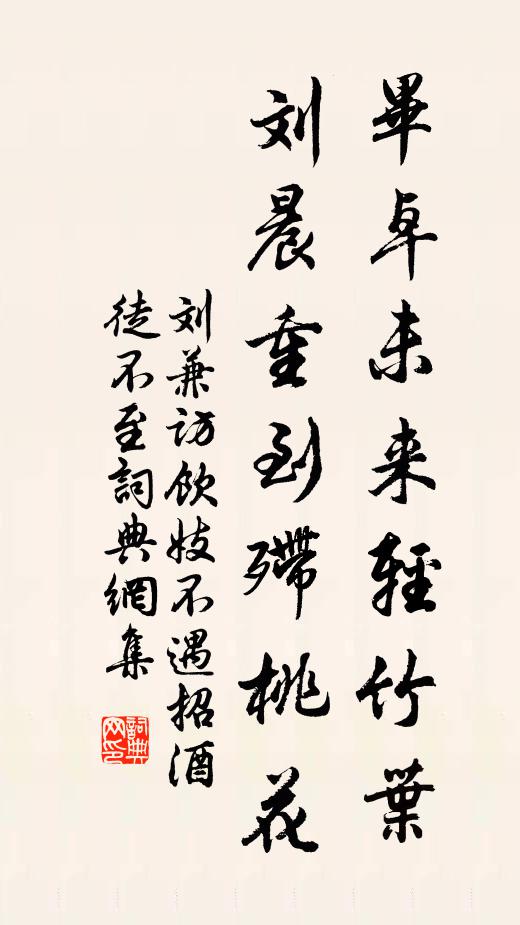 畢卓未来輕竹葉
刘晨重到殢桃花
刘兼訪飲妓不遇招酒
徒不至詞典網集
詞典
网印